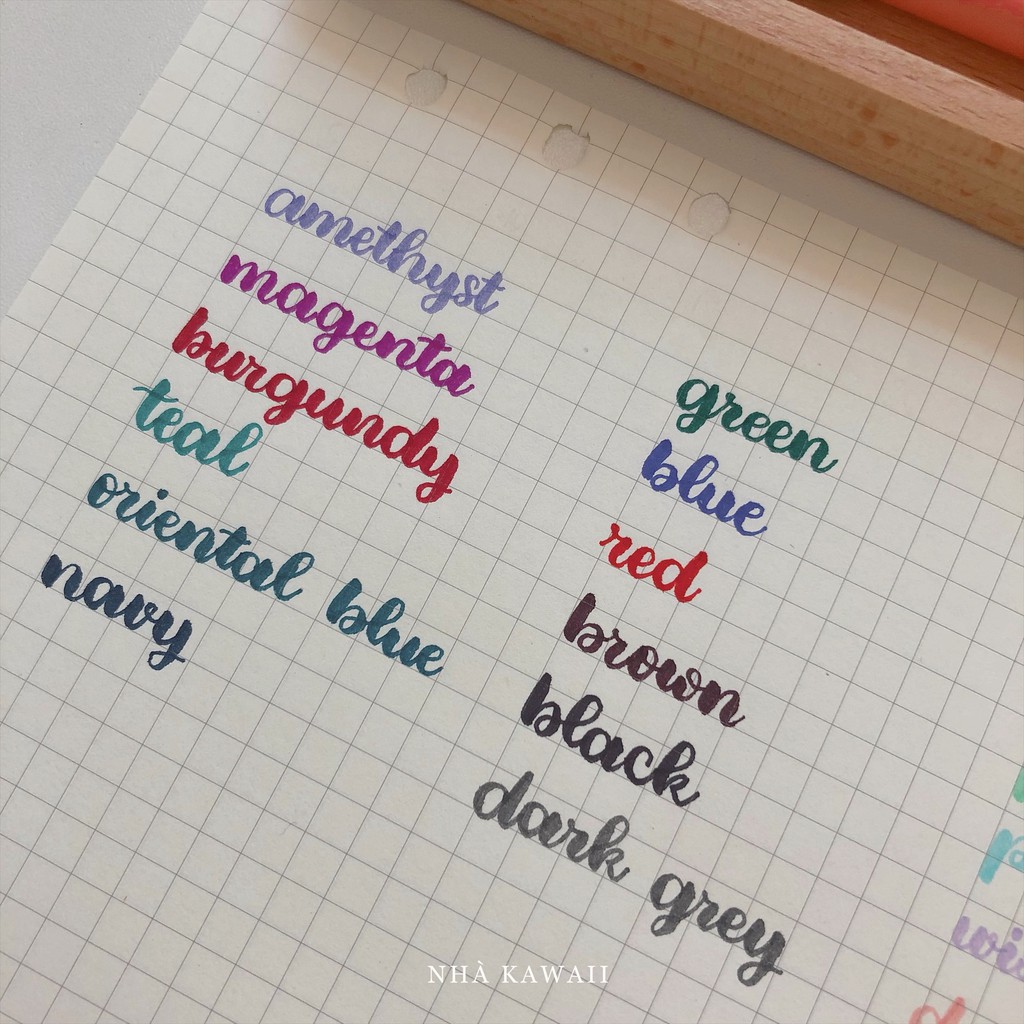 amethyst
magenta
burgundy
teal
oriental blue
navy
green
blue
red
brown
black
dark grey
NHÀ KAWAII